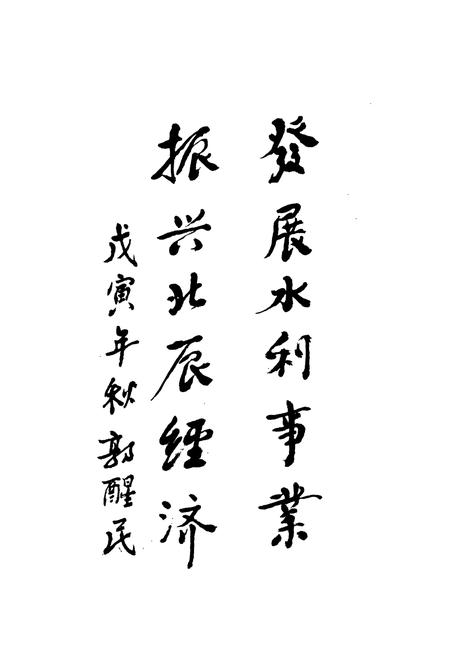 發展水利事業
振兴北辰經济
戊寅年秋 郭醒民